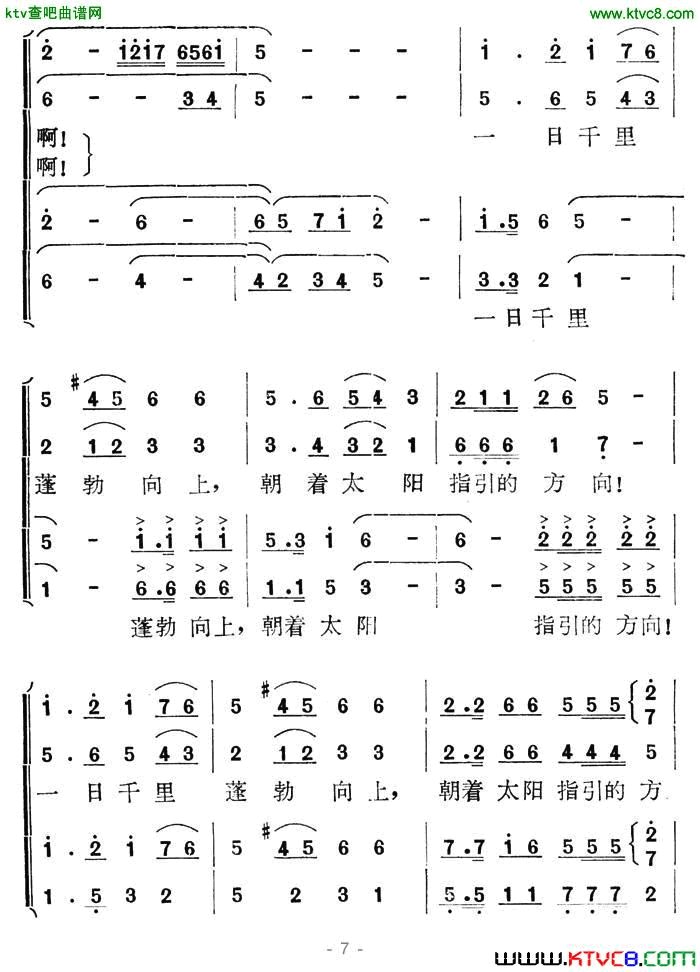 ktv查吧曲谱网 www.ktvc8.com
2̇ - 1̇2̇1̇7 6561̇ | 5 - - - | 1̇ . 2̇ 1̇ 76
6 - - 34 | 5 - - - | 5 . 6 5 43
啊! 一 日千里
啊!
2̇ - 6 - | 65 71̇ 2̇ - | 1̇.5 6 5 -
6 - 4 - | 42 34 5 - | 3.3 2 1 -
一日千里
5 #45 6 6 | 5 . 6 54 3 | 211 26 5 -
2 12 3 3 | 3 . 4 32 1 | 6̣6̣6̣ 1 7̣ -
蓬 勃 向 上, 朝 着 太 阳 指引的 方 向!
5 - 1̇.1̇ 1̇1̇ | 5.3 1̇ 6 - | 6 - 2̇2̇2̇ 2̇2̇
1 - 6.6 66 | 1.1 5 3 - | 3 - 555 55
蓬勃 向上, 朝着 太 阳 指引的 方向!
1̇ . 2̇ 1̇ 76 | 5 #45 6 6 | 2.2 66 555 {2̇/7
5 . 6 5 43 | 2 12 3 3 | 2.2 66 444 5
一 日千 里 蓬 勃 向 上, 朝着 太阳 指引的 方
1̇ . 2̇ 1̇ 76 | 5 #45 6 6 | 7.7 1̇6 555 {2̇/7
1 . 5̣ 3 2 | 5 2 3 1 | 5̣.5̣ 11 7̣7̣7̣ 2
- 7 -
www.KTVC8.com